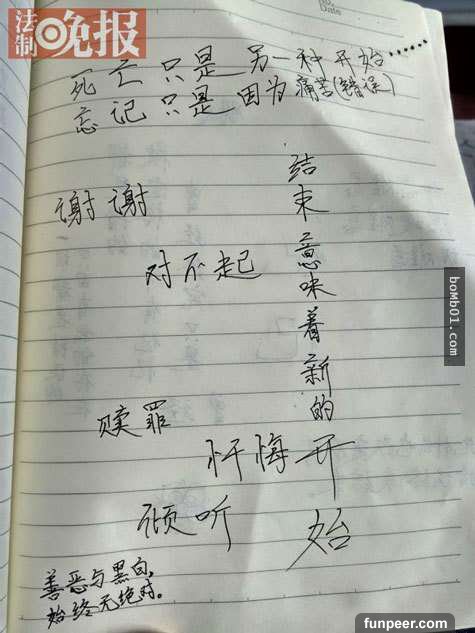 法制晚报
No.
Date
死亡只是另一种开始……
忘记只是因为痛苦(错误)
结束意味着新的开始
谢谢
对不起
赎罪
忏悔
倾听
善恶与黑白,
始终无绝对。
boMb01.com
funpeer.com